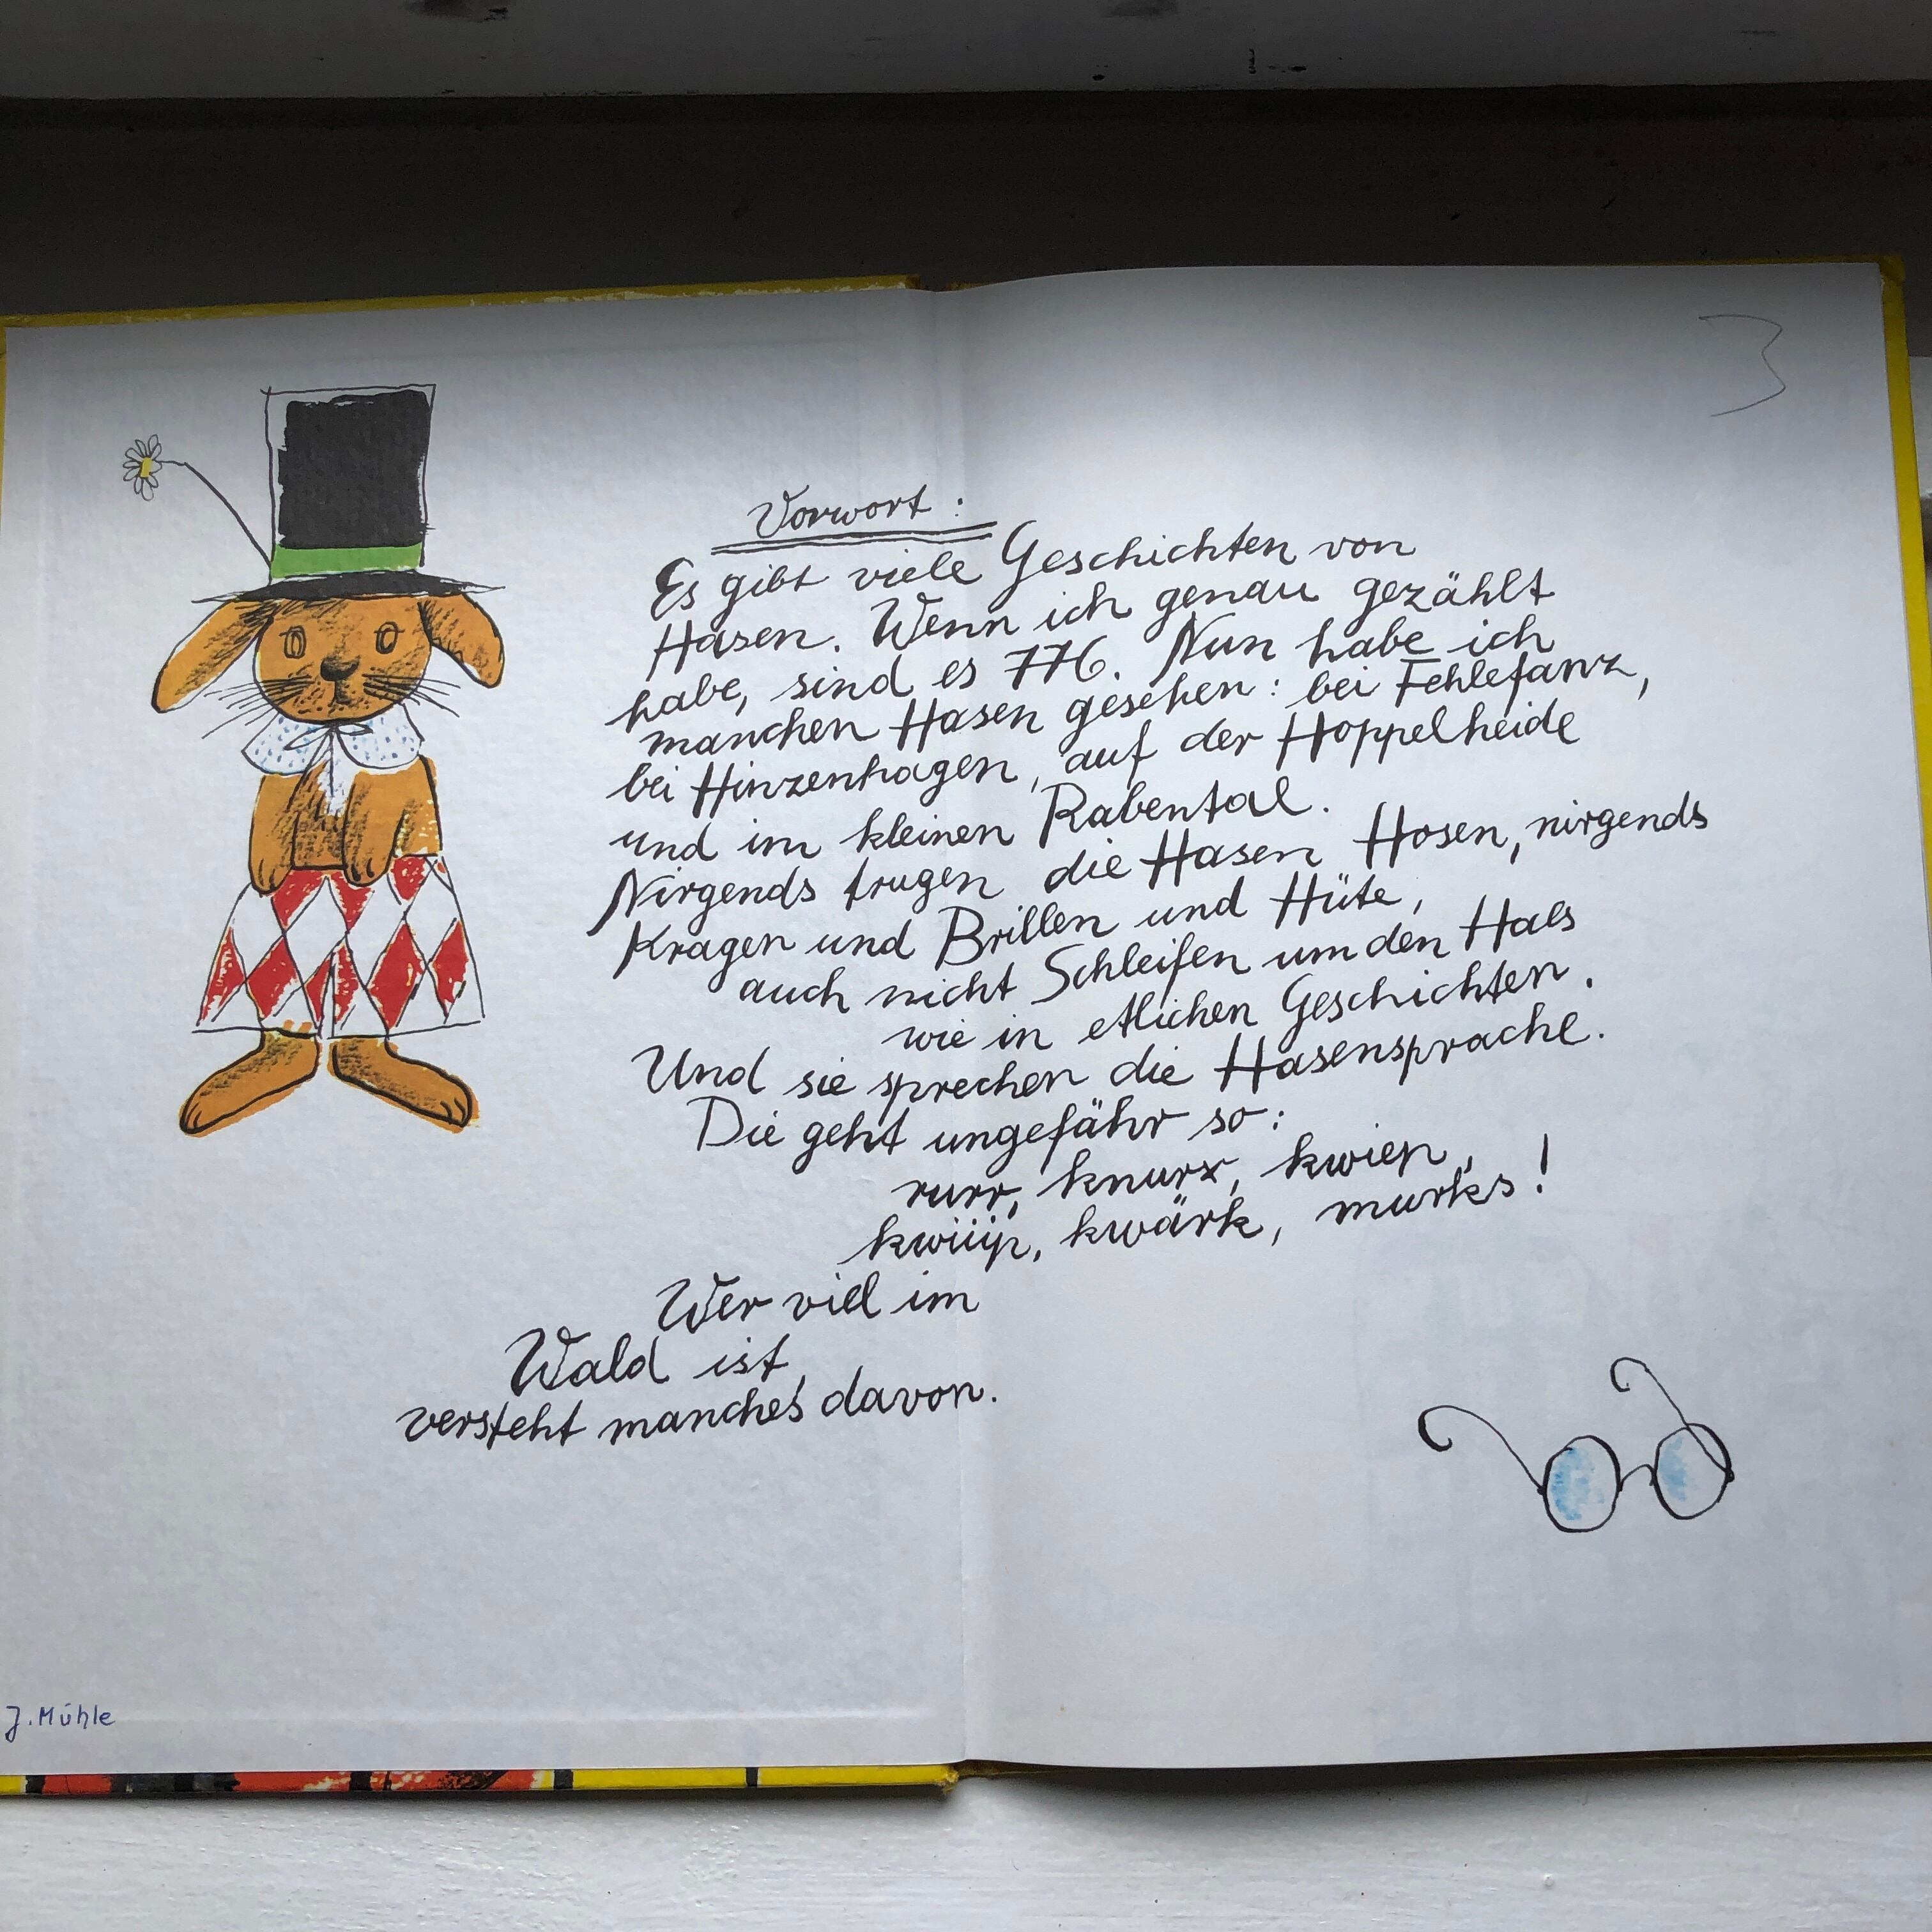 3
Vorwort:
Es gibt viele Geschichten von
Hasen. Wenn ich genau gezählt
habe, sind es 776. Nun habe ich
manchen Hasen gesehen: bei Fehlefanz,
bei Hinzenhagen, auf der Hoppelheide
und im kleinen Rabental.
Nirgends trugen die Hasen Hosen, nirgends
Kragen und Brillen und Hüte,
auch nicht Schleifen um den Hals
wie in etlichen Geschichten.
Und sie sprechen die Hasensprache.
Die geht ungefähr so:
rurr, knurx, kwiep,
kwiiip, kwärk, murks!
Wer viel im
Wald ist,
versteht manches davon.
J. Mühle